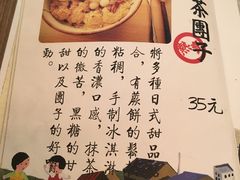 茶團子
35元
將多種日式甜品
合，有蕨餅的鬆
粘稠，手制冰淇淋
的香濃口感，抹茶
的微苦，黑糖的甘
甜以及團子的好
勁。